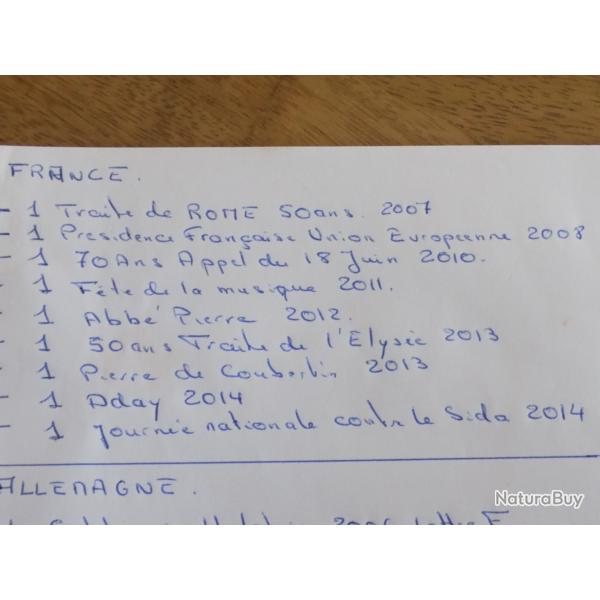 FRANCE.
- 1 Traité de ROME 50ans. 2007
- 1 Présidence Française Union Européenne 2008
- 1 70 Ans Appel du 18 Juin 2010.
- 1 Fête de la musique 2011.
- 1 Abbé Pierre 2012.
- 1 50 ans Traité de l'Elysée 2013
- 1 Pierre de Coubertin 2013
- 1 Dday 2014
- 1 Journée nationale contre le Sida 2014
ALLEMAGNE.
2006 lettre F
NaturaBuy